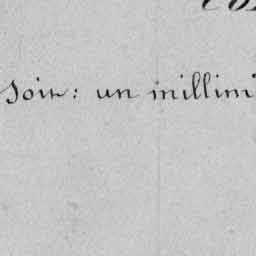 soit: un millim